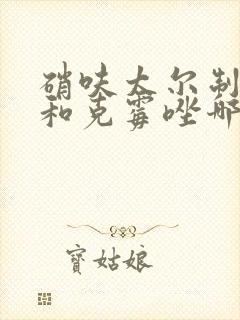 硝呋太尔制
和克霉唑哪
寶姑娘